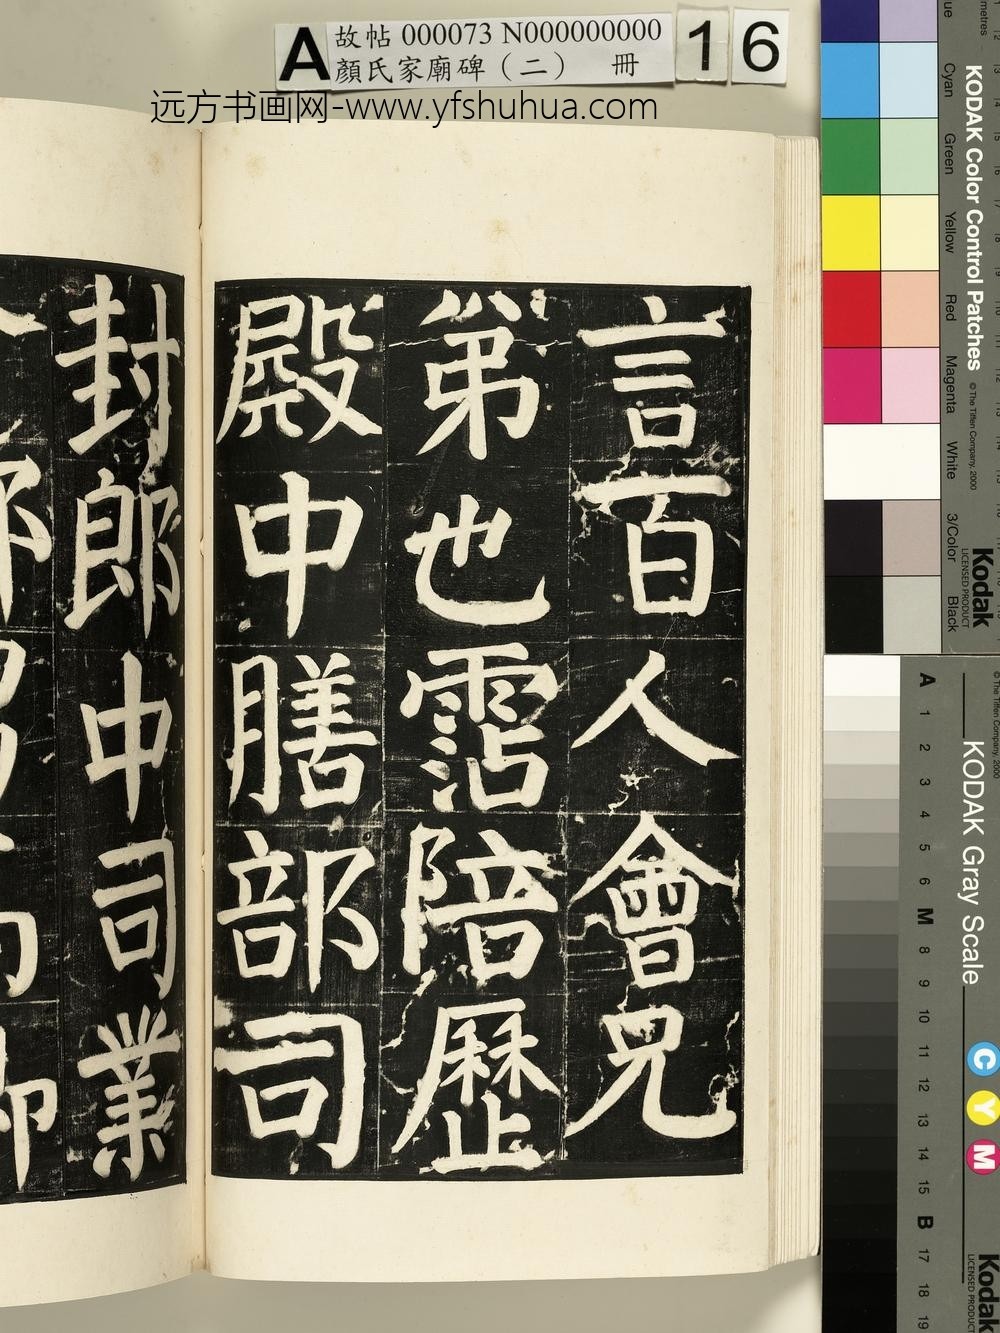 A 故帖 000073 N000000000 16
顏氏家廟碑（二） 冊
远方书画网-www.yfshuhua.com
言百人會兄
弟也霑陪歷
殿中膳部司
封郎中司業
KODAK Color Control Patches
© The Tiffen Company, 2000
Kodak
LICENSED PRODUCT
Cyan
Green
Yellow
Red
Magenta
White
3/Color
Black
KODAK Gray Scale
A 1 2 3 4 5 6 M 8 9 10 11 12 13 14 15 B 17 18 19
C Y M
Kodak
LICENSED PRODUCT